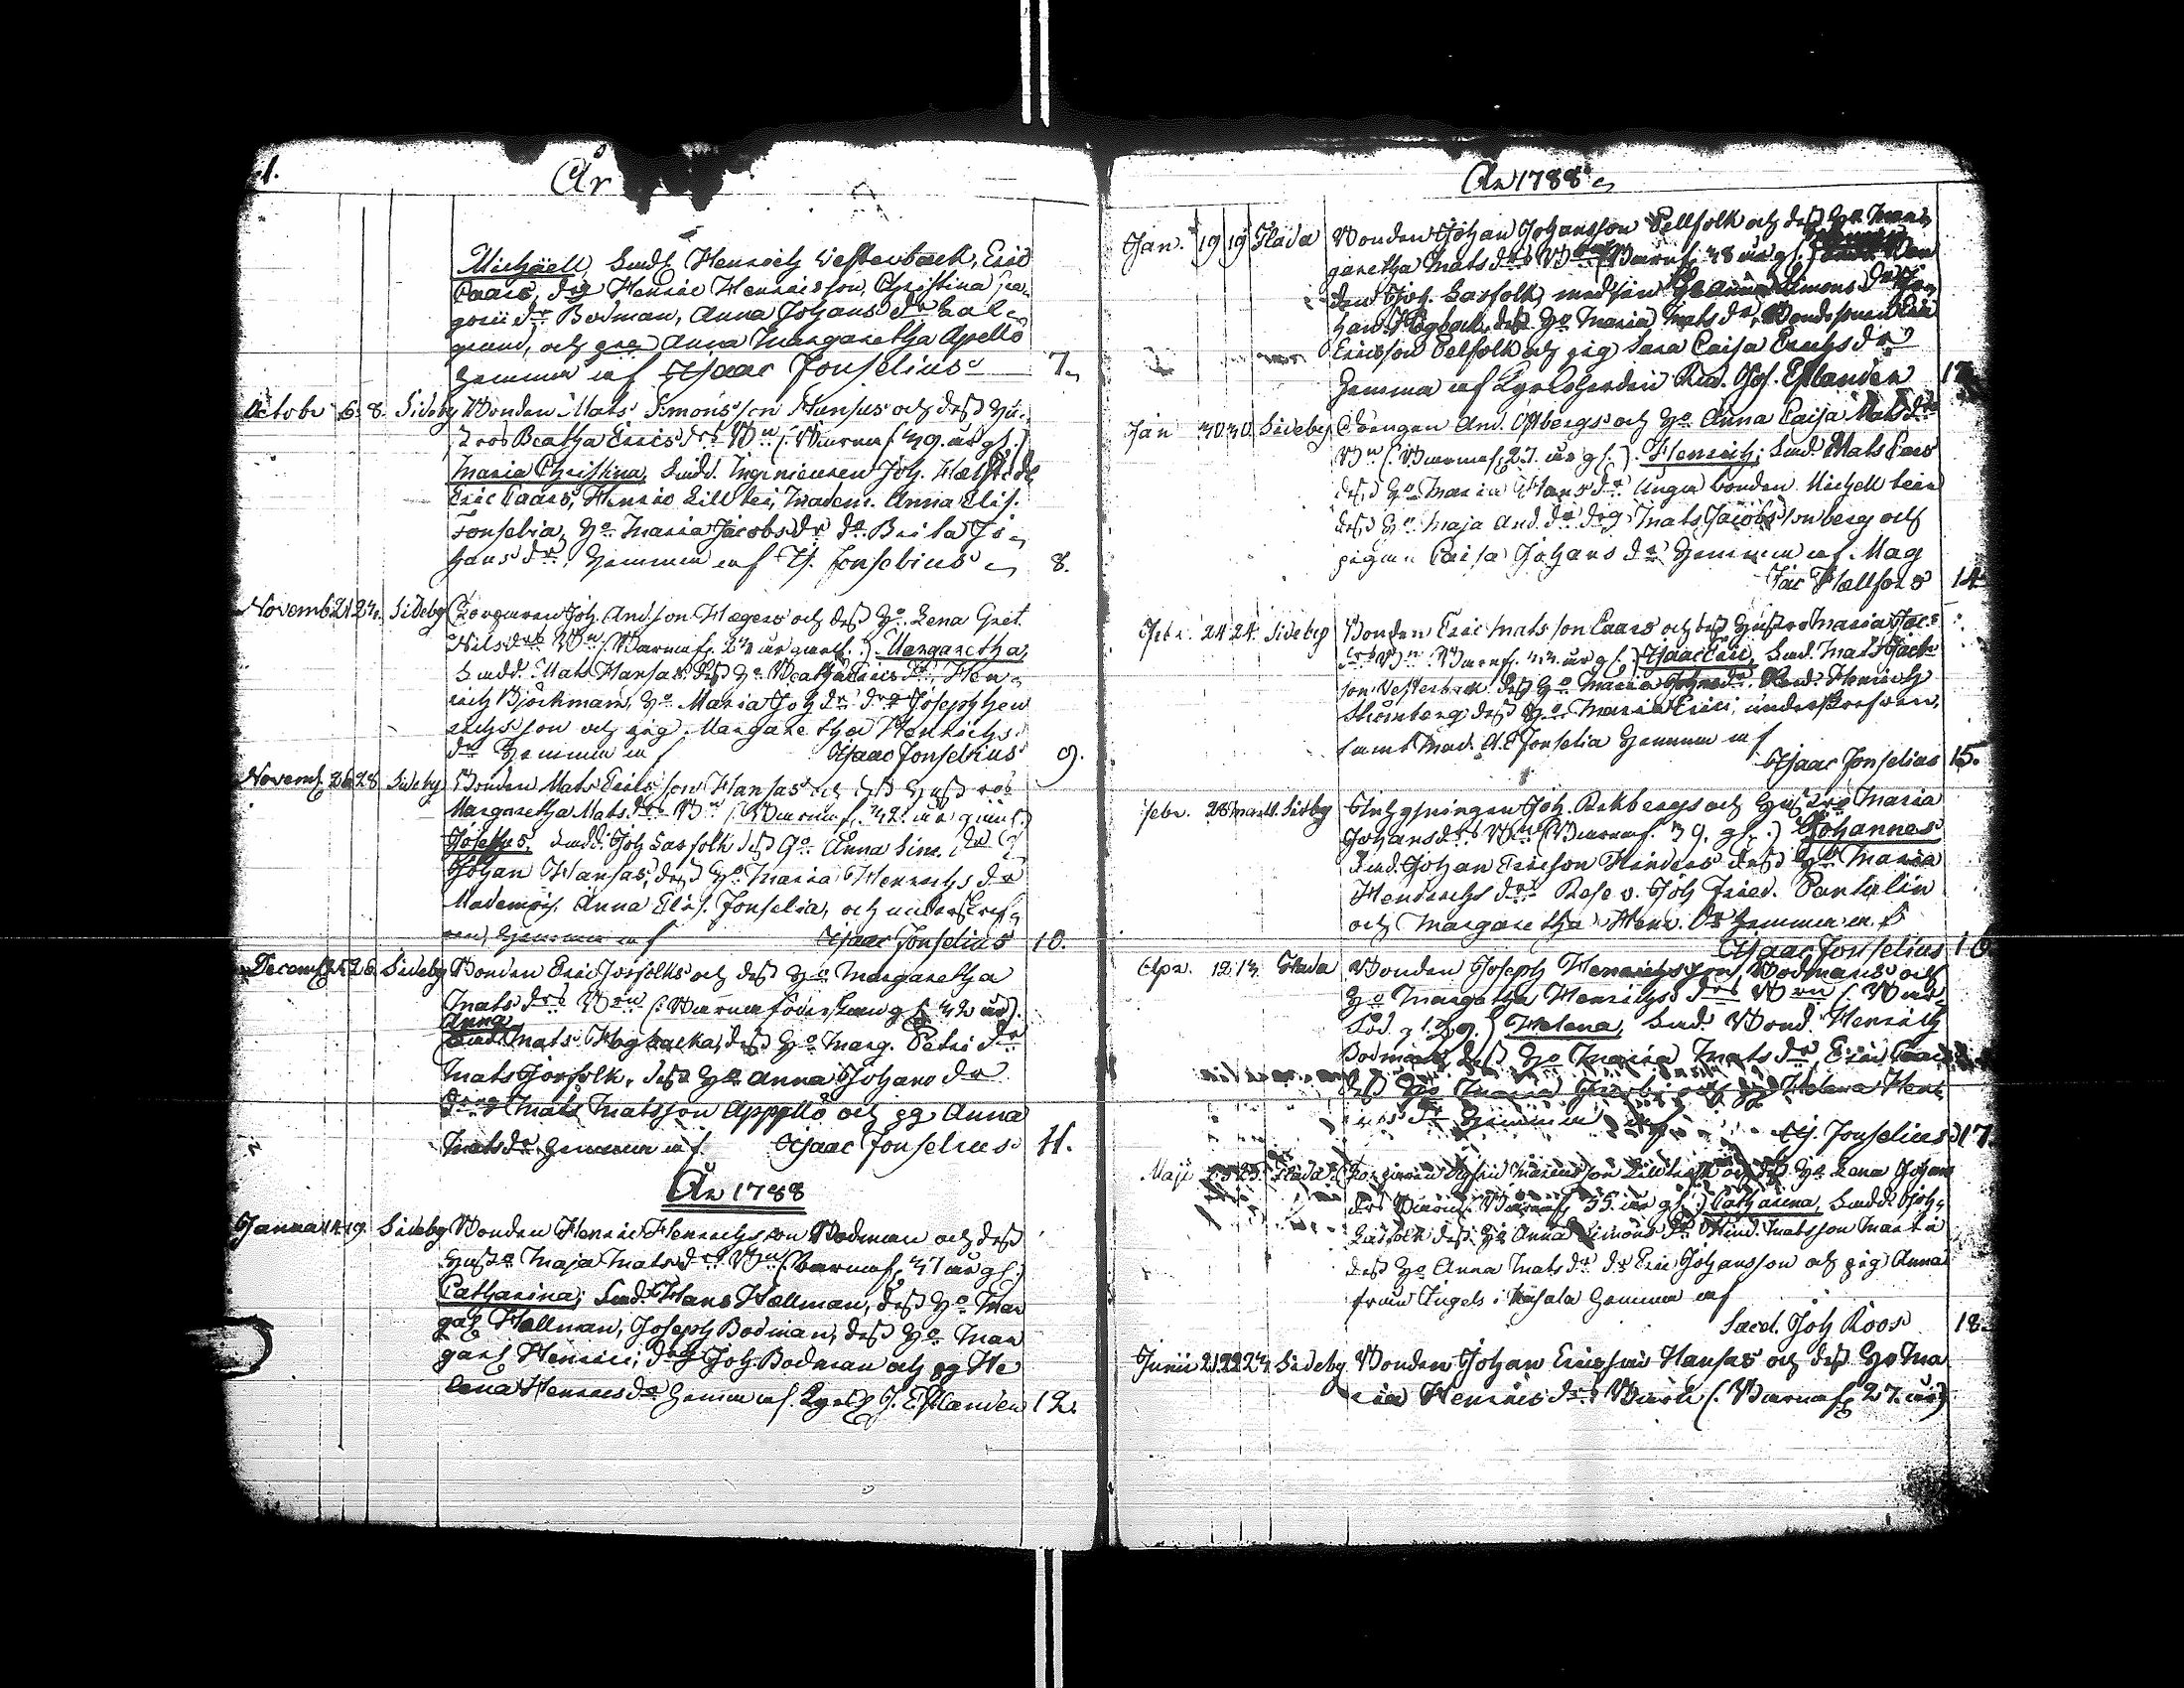 År
Michäell, Sudd. Henrich Westerback, Eric
Caars, drg Henric Henricsson, Christina Gre-
gorii dr Bodman, Anna Johans dr Lal-
grund, och pig Anna Margaretha Apellö
hemma af Isaac Fonselius 7.
Octobr 6. 8. Sideby Bonden Mats Simonsson Hansus och dess hu-
stros Beatha Erics drs Bn (: Barnaf. 39. år gl. :)
Maria Christina, Sudd. Ingenieuren Joh. Hællstedt
Eric Caars, Henric Lillteir, Madem. Anna Elis.
Fonselia, Ho Maria Jacobs dr do Brita Jo-
hans dr. hemma af Is. Fonselius 8.
Novemb 21 23. Sideby Torparen Joh. Andsson Hægers och dess Ho. Lena Gret.
Nils drs Bn (: Barnaf. 23 år gaml. :) Margaretha,
Sudd. Mats Hansas dess Ho Beatha Erics dr, Hen-
rich Björkman, Ho. Maria Joh dr drg Joseph Hen
richsson och pig. Margaretha Henrichs
dr hemma af Isaac Fonselius 9.
Novemb 26 28 Sideby Bonden Mats Erils son Hansas och dess Hustros
Margaretha Mats drs Bn (: Barnaf. 32. år gaml. :)
Josephus, Sudd. Joh Lasfolk dess Ho Anna Sim. dr
Johan Hansas, dess Ho Maria Henrichs dr
Mademois. Anna Elis. Fonselia, och underskref-
ven, hemma af Isaac Fonselius 10.
Decemb 25 26. Sideby Bonden Eric Josfolks och dess Ho Margaretha
Mats drs Barn (: Barnaföderskan gl. 32 år).
Anna
Sudd. Mats Hogbacka, dess Ho Marg. Petri dr
Mats Josfolk, dess Ho Anna Johans dr
dreng Mats Matsson Appellö och pg Anna
Mats dr hemma af. Isaac Fonselius 11.
År 1788
Janua 18 19. Sideby Bonden Henric Henrichsson Bodman och dess
Hustro Maja Mats drs Bn (: Barnaf. 37 år gl. :)
Catharina; Sud. Hans Hællman, dess Ho Mar
gah Hællman, Joseph Bodman, dess Ho Mar
garh Henrici; drg Joh Bodman och pg He
lena Henrics dr hemma af. Kyrkh J. Estlander 12.
År 1788
Jan. 19 19 Flada Bonden Johan Johansson Pellfolk och dess Ho Mar
garetha Mats drs Barn (Barnaf. 38 år gl.) Bon
den Joh. Lasfolk, med sin Ho Anna Simons dr Jo-
han Högback, dess Ho Maria Mats dr, Bondesonen Eric
Ericsson Pelfolk och pig Sara Caisa Erichs dr
hemma af Kyrkoherden And. Joh. Estlander
Jan 30 30 Sideby Drengen And. Ostbergs och Ho Anna Caisa Mats drs
Bn (: Barnaf. 27. år gl. :) Henrich; Sud. Mats Cars
dess Ho Maria Hans dr Unga bonden Michell teir
dess Ho Maja And. dr drg Mats Jacobsson berg och
pigan Caisa Johans dr hemma af. Mag
Jac Hællfors 14
Febr. 24 24. Sideby Bonden Eric Matsson Caars och dess hustro Maria Jac
drs Bn (: Barnf. 33 år gl. :) Isaac Eric, Sud. Mats Jacobs
son Vesterback dess Ho Maria Johns dr. Henrich
Stromberg dess Ho Maria Erici, underskrefven,
samt Mad. A. E Fonselia hemma af
Isaac Fonselius 15.
Febr. 28 mart. 1. Sideby Joh. Rekbergs och Hustro Maria
Johans drs Bn (Barnaf. 39. gl. :) Johannes
Sud. Johan Ericson Hinders dess Ho Maria
Hendrichs dr. Refe v. Joh Fried. Pantalin
och Margaretha Henr. dr hemma af
Isaac Fonselius 16
Apr. 12 13. Flada Bonden Joseph Henrichsson Bodmans och
Ho Margatha Henrichs drs Barn (: Bar
föd. gl. 29. :) Helena, Sud. Bond. Henrich
Bodman, dess Ho Maria Mats dr, Eric Caars
dess Ho Maria och pg Helena Hen
rics dr hemma af Is. Fonselius 17.
Maji 25. Flada Torparen Matsson och dess Ho Lena Johans
drs Barn (: Barnaf. 35. år gl. :) Catharina, Sudd. Joh.
Lasfolk dess Ho Anna Simons dr Hind. Matsson Martin
dess Ho Anna Mats dr dr Eric Johansson och pig Anna
från Ingels i Kasala hemma af
Sacel. Joh Roos 18.
Junii 21. 22 23 Sideby Bonden Johan Ericsson Hansas och dess Ho Ma
ria Henrics drs Barn (: Barnaf. 27. år)